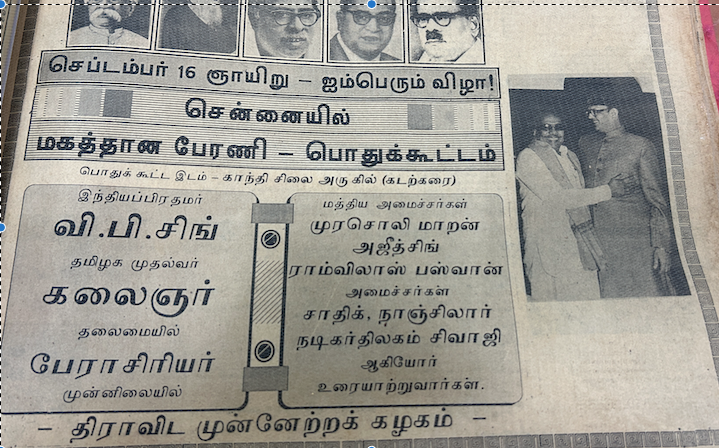 செப்டம்பர் 16 ஞாயிறு – ஐம்பெரும் விழா!
சென்னையில்
மகத்தான பேரணி – பொதுக்கூட்டம்
பொதுக் கூட்ட இடம் – காந்தி சிலை அருகில் (கடற்கரை)
இந்தியப்பிரதமர்
வி.பி.சிங்
தமிழக முதல்வர்
கலைஞர்
தலைமையில்
பேராசிரியர்
முன்னிலையில்
மத்திய அமைச்சர்கள்
முரசொலி மாறன்
அஜீத்சிங்
ராம்விலாஸ் பஸ்வான்
அமைச்சர்கள்
சாதிக், நாஞ்சிலார்
நடிகர்திலகம் சிவாஜி
ஆகியோர்
உரையாற்றுவார்கள்.
– திராவிட முன்னேற்றக் கழகம் –